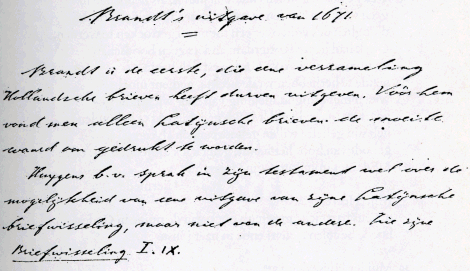 Brandt's uitgave van 1671.
Brandt is de eerste, die eene verzameling
Hollandsche brieven heeft durven uitgeven. Vóór hem
vond men alleen Latijnsche brieven de moeite
waard om gedrukt te worden.
Huygens b.v. sprak in zijn testament wel over de
mogelijkheid van eene uitgave van zijne Latijnsche
briefwisseling, maar niet van de andere. Zie zijne
Briefwisseling I. IX.